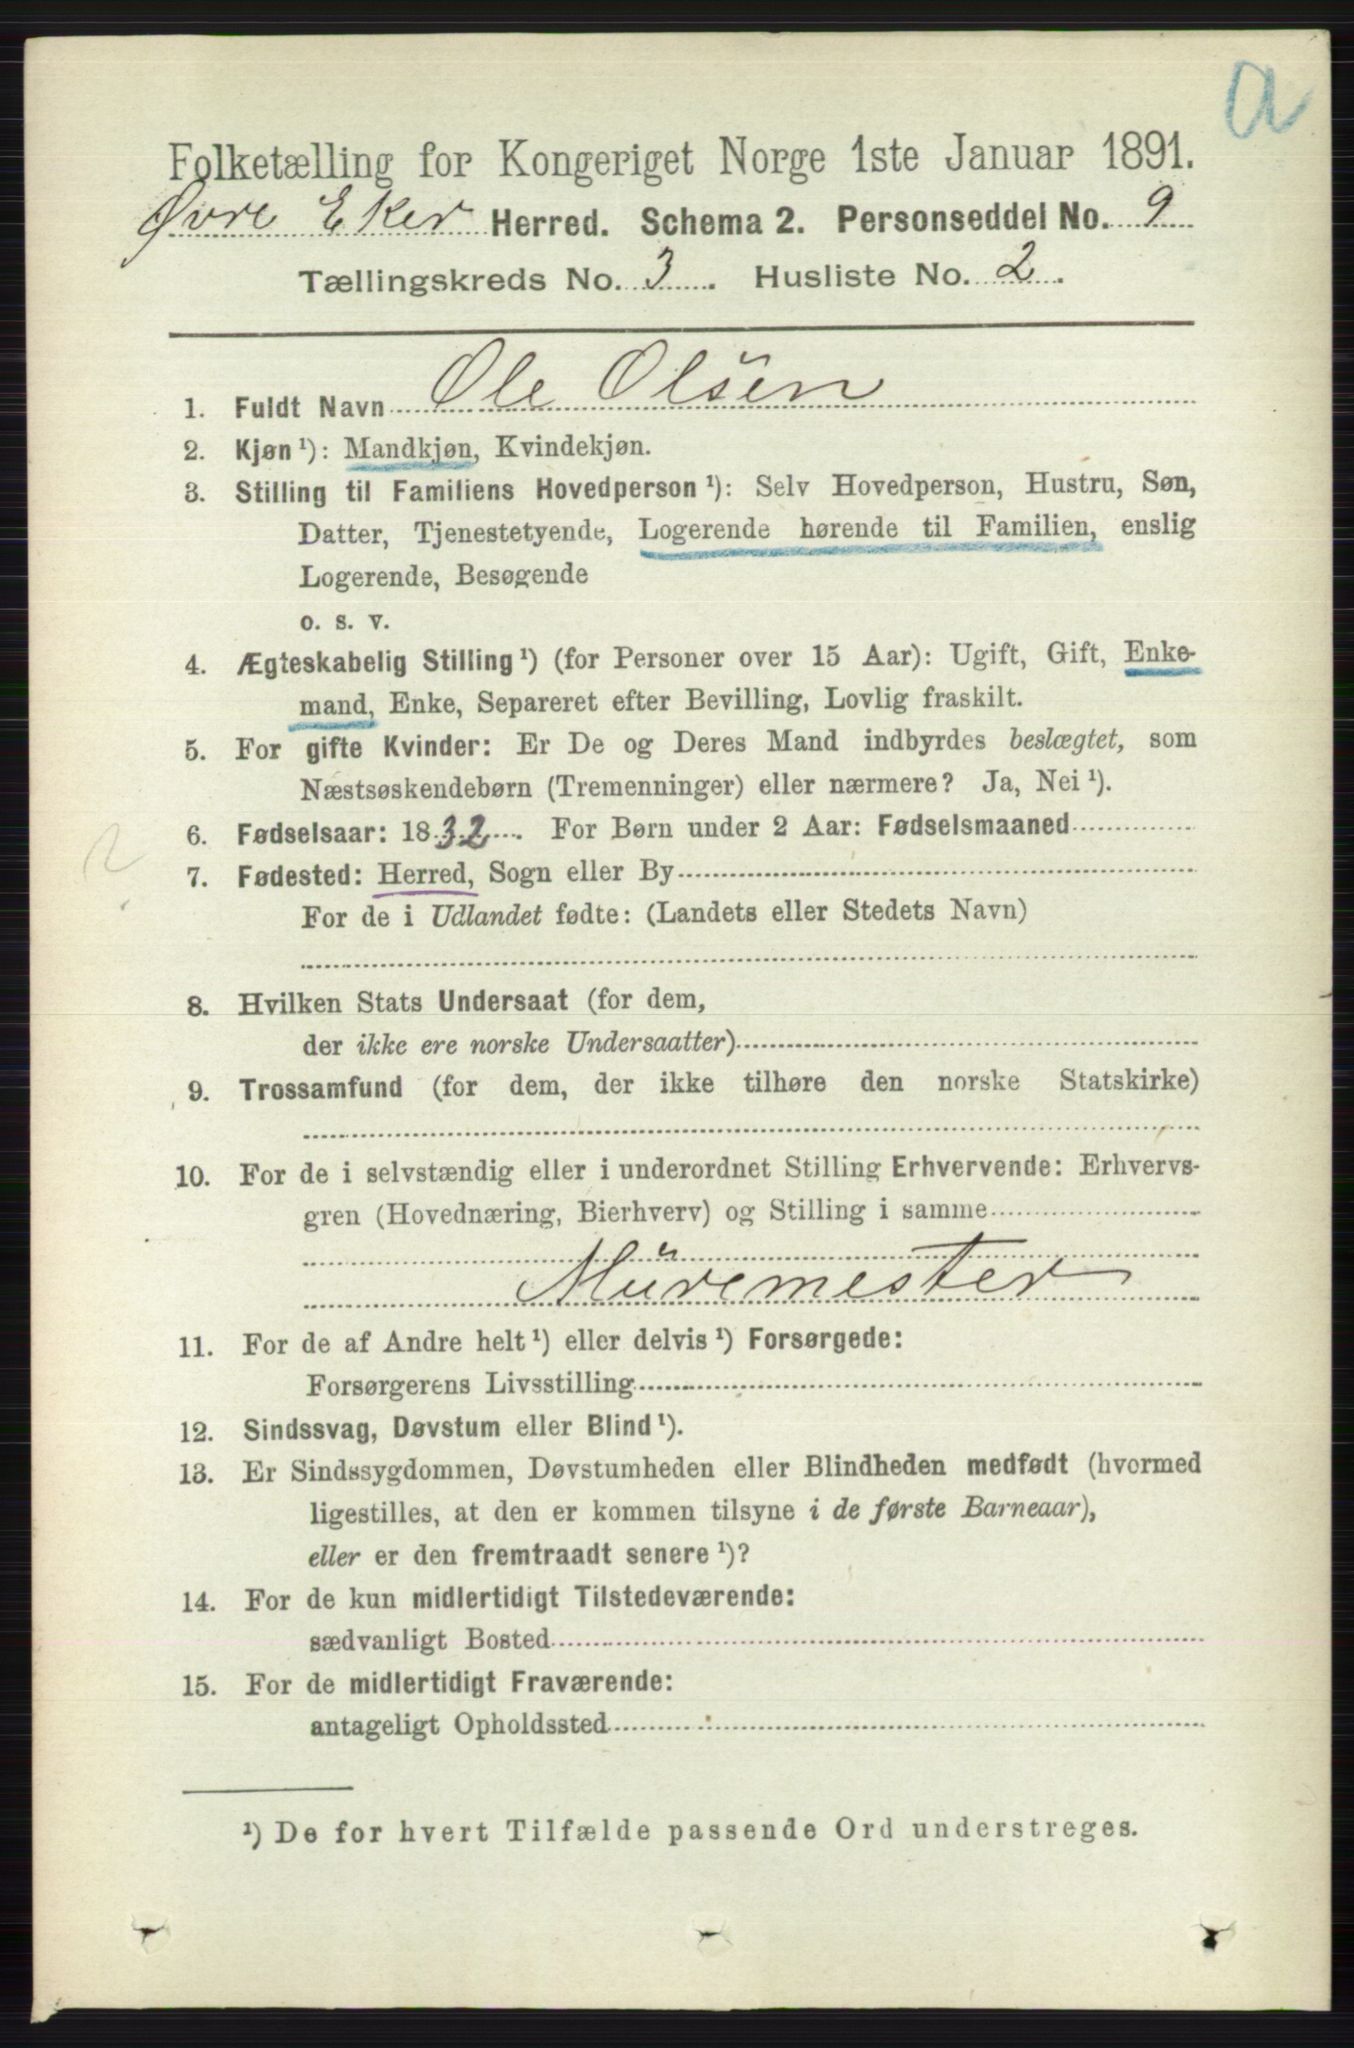 a
Folketælling for Kongeriget Norge 1ste Januar 1891.
Øvre Eker Herred. Schema 2. Personseddel No. 9
Tællingskreds No. 3. Husliste No. 2.
1. Fuldt Navn Ole Olsen
2. Kjøn¹): Mandkjøn, Kvindekjøn.
3. Stilling til Familiens Hovedperson¹): Selv Hovedperson, Hustru, Søn,
Datter, Tjenestetyende, Logerende hørende til Familien, enslig
Logerende, Besøgende
o. s. v.
4. Ægteskabelig Stilling¹) (for Personer over 15 Aar): Ugift, Gift, Enke-
mand, Enke, Separeret efter Bevilling, Lovlig fraskilt.
5. For gifte Kvinder: Er De og Deres Mand indbyrdes beslægtet, som
Næstsøskendebørn (Tremenninger) eller nærmere? Ja, Nei¹).
6. Fødselsaar: 1832. For Børn under 2 Aar: Fødselsmaaned
?
7. Fødested: Herred, Sogn eller By
For de i Udlandet fødte: (Landets eller Stedets Navn)
8. Hvilken Stats Undersaat (for dem,
der ikke ere norske Undersaatter)
9. Trossamfund (for dem, der ikke tilhøre den norske Statskirke)
10. For de i selvstændig eller i underordnet Stilling Erhvervende: Erhvervs-
gren (Hovednæring, Bierhverv) og Stilling i samme
Muremester
11. For de af Andre helt¹) eller delvis¹) Forsørgede:
Forsørgerens Livsstilling
12. Sindssvag, Døvstum eller Blind¹).
13. Er Sindssygdommen, Døvstumheden eller Blindheden medfødt (hvormed
ligestilles, at den er kommen tilsyne i de første Barneaar),
eller er den fremtraadt senere¹)?
14. For de kun midlertidigt Tilstedeværende:
sædvanligt Bosted
15. For de midlertidigt Fraværende:
antageligt Opholdssted
¹) De for hvert Tilfælde passende Ord understreges.